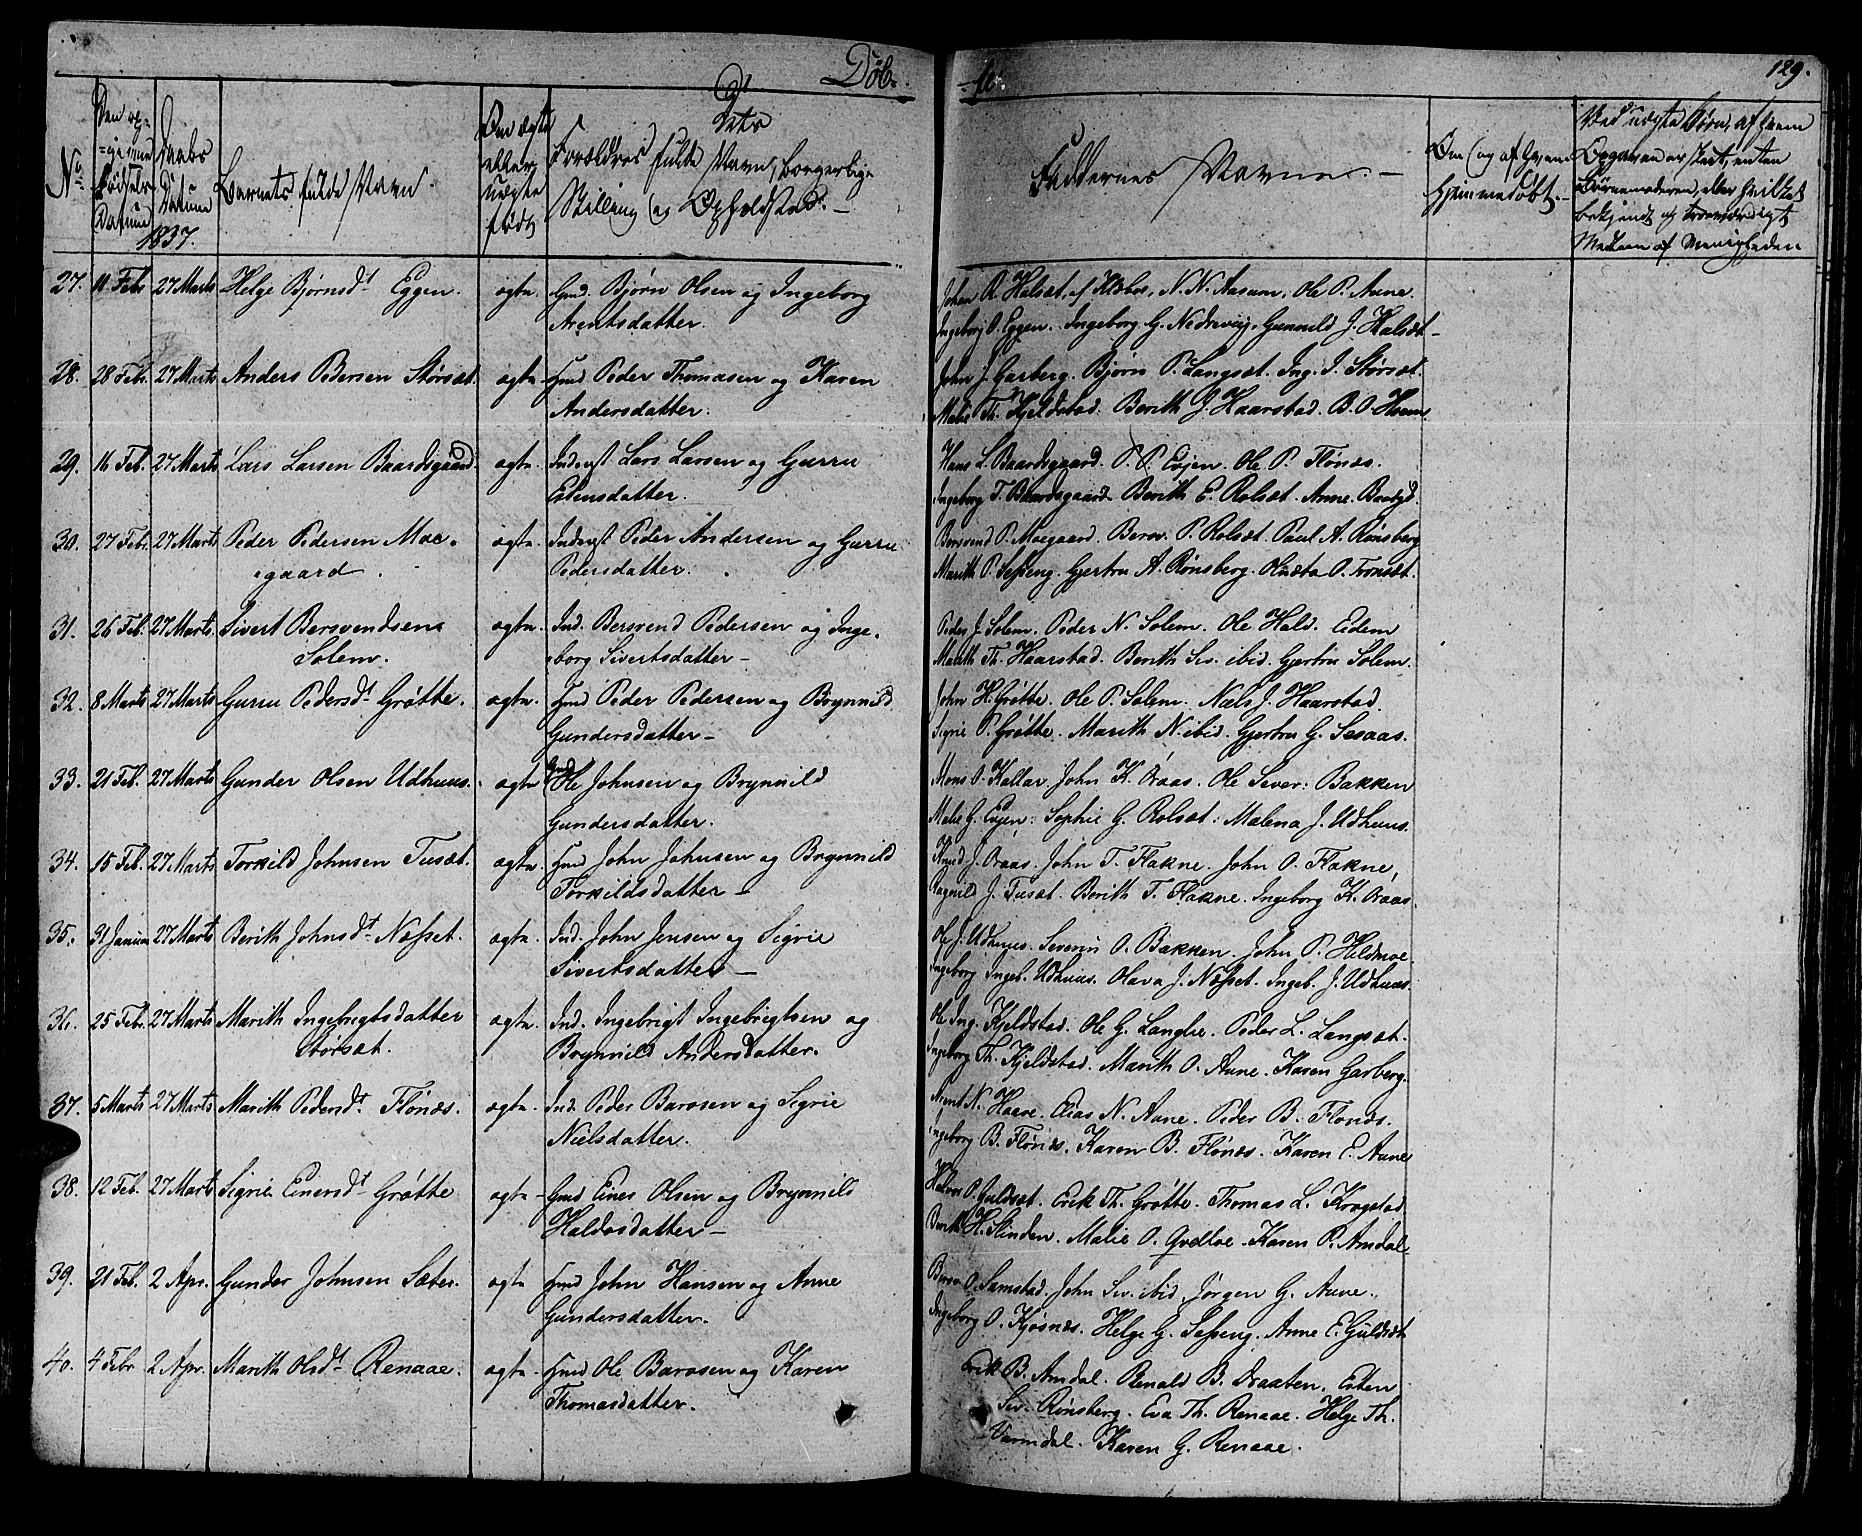 Døb- -te 129.
No.
Den op-
-givne
Fødsels
Datum
Daabs
Datum
1837.
Barnets fulde Navn.
Om ægte
eller
uægte
født
Dets
Forældres fulde Navn, borgerlige
Stilling og Opholdsted. -
Faddernes Navne. -
Om (og af hvem
hjemmedøbt. -
Ved uægte Børn, af hvem
Opgaven er skeet, enten
Barnemoderen, eller hvilket
bekjendt og troværdigt
Medlem af Menigheden
27. 11 Febr 27 Marts Helge Bjørnsdt Eggen. ægte. Gmd. Bjørn Olsen og Ingeborg
Arentsdatter.
Johan R. Halsæt, af Klæboe, N. N. Aasum, Ole P. Aune.
Ingeborg O. Eggen. Ingeborg G. Nedrevig. Gunnild J. Halsæt
28. 28 Feb. 27 Marts Anders Pedersen Størsæt. ægte Hmd Peder Thomasen og Karen
Andersdatter.
John J. Garberg. Bjørn P. Langsæt. Ing. J. Størsæt.
Malie Th. Kjeldstad. Berith J. Haarstad. B. O.
29. 16 Feb. 27 Marts Lars Larsen Baardsgaard. ægte. Inderst Lars Larsen og Gurru
Estensdatter.
Hans L. Baardsgaard. P. P. Evjen. Ole P. Flønæs.
Ingeborg T. Baardsgaard. Berith E. Rolset. Anne
30. 27 Feb. 27 Marts Peder Pedersen Moe-
-gaard. ægte. Inderst Peder Andersen og Gurru
Pedersdatter.
Bersvend P. Moegaard. Bersv. P. Rolset. Paul A. Rønsberg
Marith P. Sesseng. Gjertru A. Rønsberg. O. Tronsæt.
31. 26 Feb. 27 Marts. Sivert Bersvendsen
Solem. ægte. Ind. Bersvend Pedersen og Inge-
borg Sivertsdatter -
Peder J. Solem. Peder N. Solem. Ole Hald. Eidem
Marith Th. Haarstad. Berith Siv. ibid. Gjertru Solem.
32. 8 Marts 27 Marts Gurru Pedersdt Grøtte. ægte. Hmd Peder Pedersen og Brynnild
Gundersdatter -
John H. Grøtte. Ole P. Solem. Niels J. Haarstad.
Sigrie P. Grøtte. Marith N. ibid. Gjertru G. Sesaas.
33. 21 Feb. 27 Marts Gunder Olsen Udhuus. ægte Gmd Ole Johnsen og Brynnild
Gundersdatter.
Mons O. Kallar. John K. Draas. Ole Sever: Bakken
Malie G. Evjen: Sophie G. Rolset: Malena J. Udhuus.
34. 15 Feb. 27 Marts Torkild Johnsen Tusæt. ægte. Hmd John Johnsen og Brynnild
Torkildsdatter -
Knud J. Draas. John T. Flakne. John O. Flakne,
Ragnild J. Tusæt. Berith T. Flakne. Ingeborg K. Draas.
35. 31 Januar 27 Marts Berith Johnsdt Næsset. ægte. Ind. John Jensen og Sigrie
Sivertsdatter -
Ole J. Udhuus. Severin O. Bakken. John P. Hildmoe.
Ingeborg Ingeb. Udhuus. Olava J. Næsset. Ingeb. J. Udhuus.
36. 25 Feb. 27 Marts Marith Ingebrigtsdatter
Størsæt. ægte. Ind. Ingebrigt Ingebrigtsen og
Brynnild Andersdatter.
Ole Ing. Kjeldstad. Ole G. Langlie. Peder L. Langsæt.
Ingeborg Th. Kjeldstad. Marith O. Aune. Karen Garberg.
37. 5 Marts 27 Marts Marith Pedersdt. Flønæs. ægte. Ind. Peder Barosen og Sigrie
Nielsdatter.
Arent N. Haave. Elias N. Aune. Peder B. Flønæs.
Ingeborg B. Flønæs. Karen B. Flønæs. Karen E. Aune
38. 12 Feb. 27 Marts Sigrie Einersdt Grøtte ægte - Gmd Einer Olsen og Brynnild
Haldosdatter -
Halvor O. Guldset. Erik Th. Grøtte. Thomas L. Kragstad
Berith H. Slinden. Malie O. Qvelloe. Karen P. Amdal.
39. 21 Feb. 2 Apr. Gunder Johnsen Sæter. ægte Hmd John Hansen og Anne
Gundersdatter.
Bersv. O. Samstad. John Siv. ibid. Jørgen G. Aune.
Ingeborg O. Kjøsnæs. Helge G. Sesseng. Anne E. Guldset
40. 4 Febr 2 Apr. Marith Olsdt Renaae. ægte Hmd Ole Barosen og Karen
Thomasdatter.
Erik B. Amdal. Renald B. Draaten. Esten
Siv. Rønsberg. Eva Th. Renaae. Helge Th.
Varmdal. Karen G. Renaae.